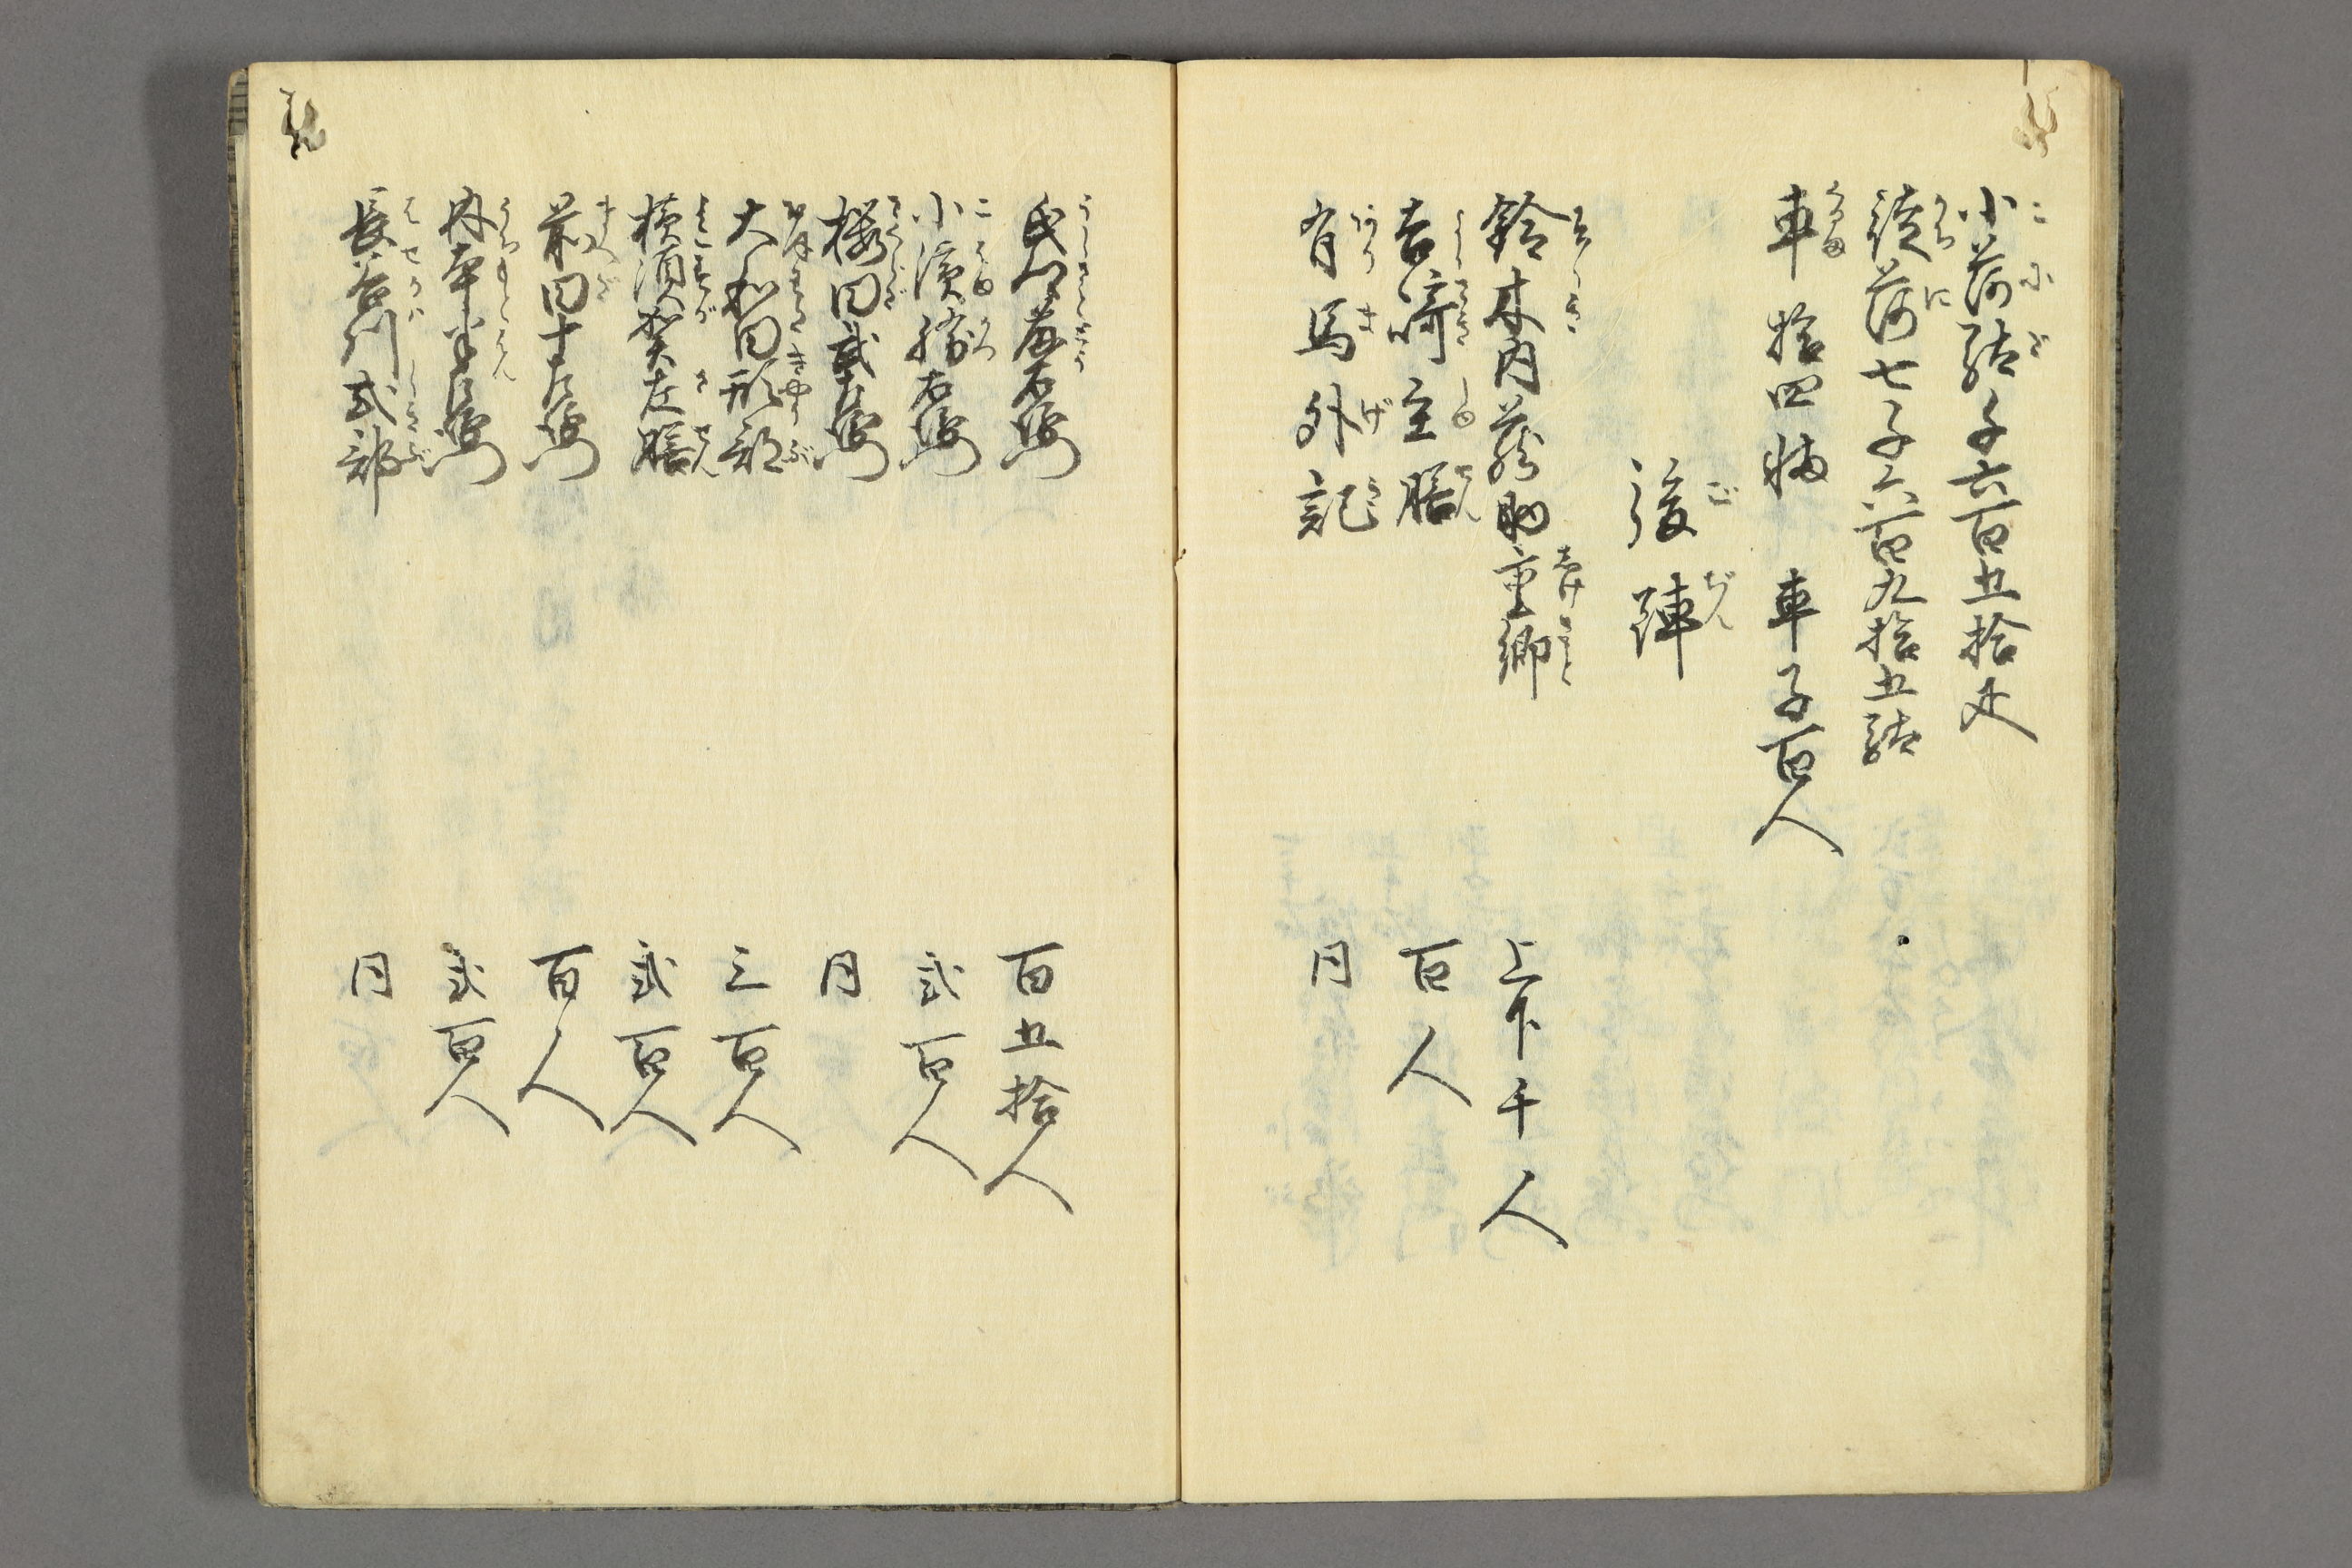 小荷駄千六百五拾疋
徒荷七千六百九拾五駄
車拾四輌　車子百人
後陣
鈴木内蔵助重郷　上下千人
吉崎主膳　百人
有馬外記　同
氏江藤右衛門　百五拾人
小濱勝右衛門　弐百人
桜田武左衛門　同
大和田形部　三百人
横須賀左膳　弐百人
前田十左衛門　百人
内本半左衛門　弐百人
長谷川式部　同